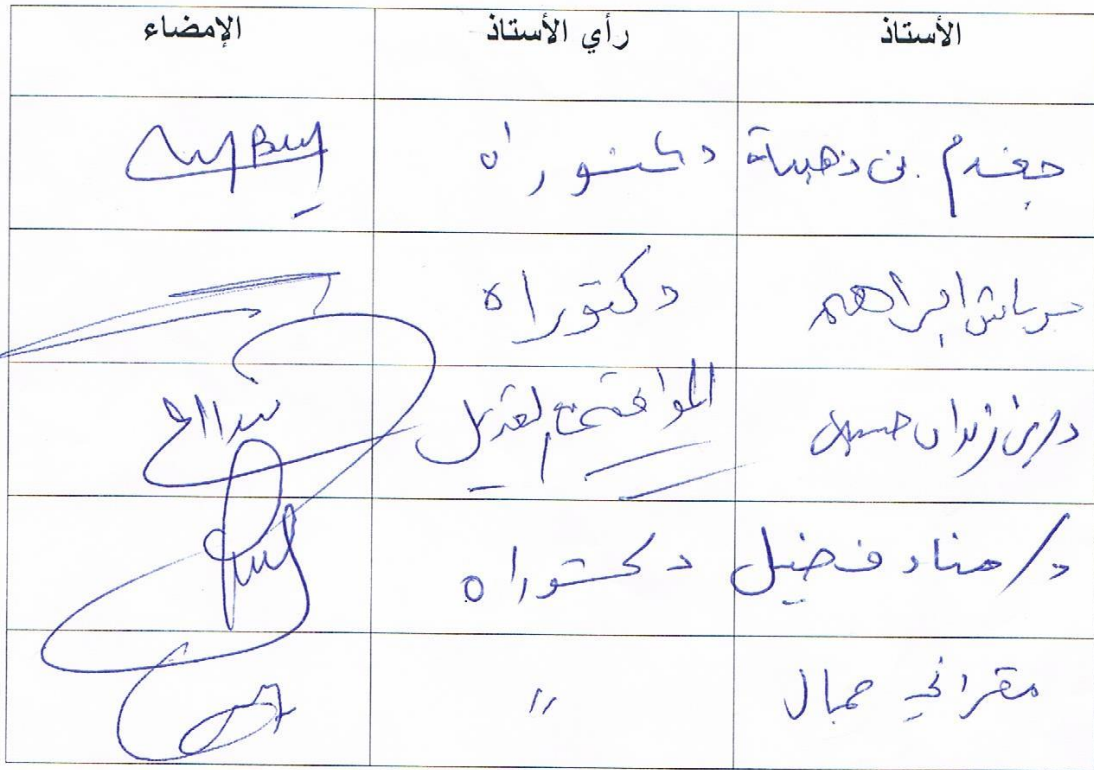 الأستاذ رأي الأستاذ الإمضاء
جغدم بن ذهيبة دكتوراه
حرباش إبراهيم دكتوراه
د/بن زيدان حسين الموافقة مع تعديل
د/ مناد فضيل دكتوراه
مقراني جمال //